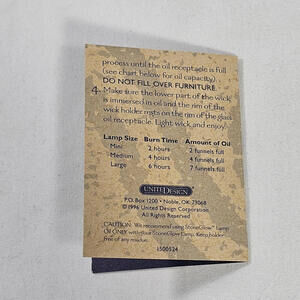 process until the oil receptacle is full
(see chart below for oil capacity).
DO NOT FILL OVER FURNITURE.
4. Make sure the lower part of the wick
is immersed in oil and the rim of the
wick holder rests on the rim of the glass
oil receptacle. Light wick and enjoy.
Lamp Size Burn Time Amount of Oil
Mini 2 hours 2 funnels full
Medium 4 hours 4 funnels full
Large 6 hours 7 funnels full
UNITED DESIGN
P.O. Box 1200 • Noble, OK 73068
©1996 United Design Corporation
All Rights Reserved
CAUTION: We recommend using StoneGlow™ Lamp
Oil ONLY with your StoneGlow Lamp. Keep holder
free of any residue.
1500524